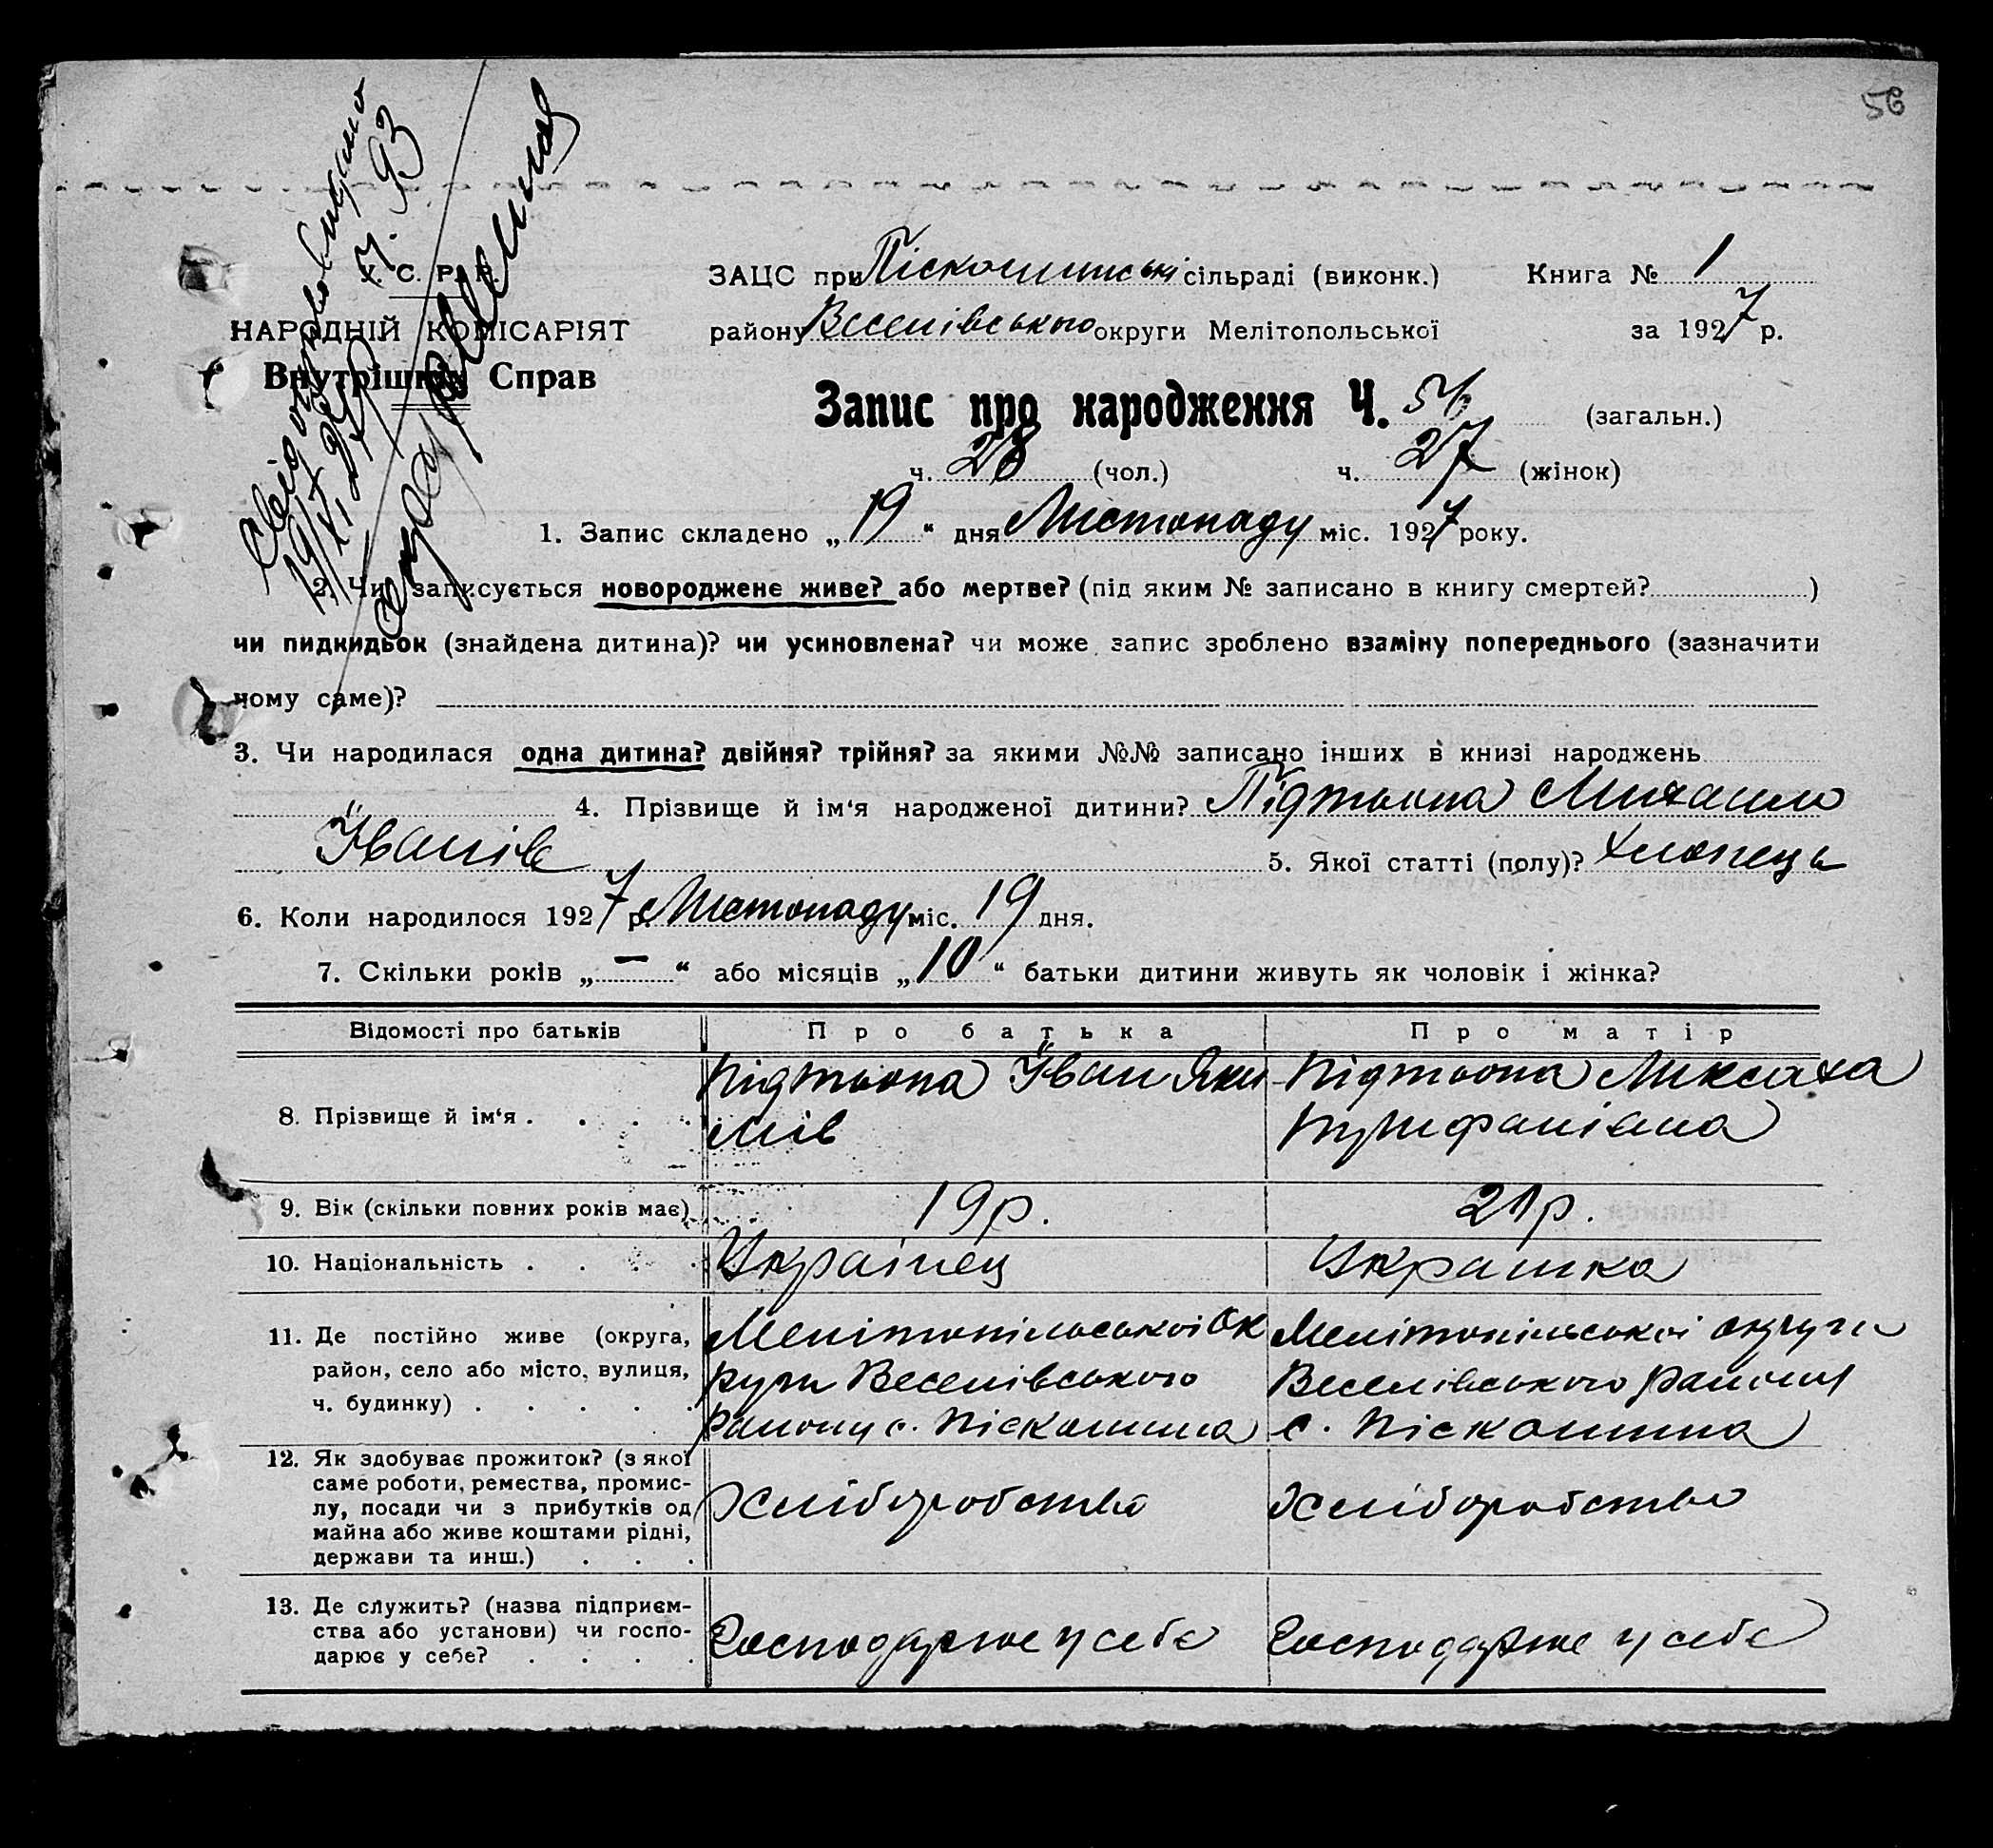 56
Свідоцтво видано
19/XI 27 р. 7. 93
У. С. Р. Р.
НАРОДНІЙ КОМІСАРІЯТ
Внутрішніх Справ
ЗАЦС при Піскошинські сільраді (виконк.) Книга № 1
району Веселівського округи Мелітопольської за 1927 р.
Запис про народження Ч. 56 (загальн.)
ч. 28 (чол.) ч. 27 (жінок)
1. Запис складено „19“ дня Листопаду міс. 1927 року.
2. Чи записується новороджене живе? або мертве? (під яким № записано в книгу смертей? )
чи пидкидьок (знайдена дитина)? чи усиновлена? чи може запис зроблено взаміну попереднього (зазначити
чому саме)?
3. Чи народилася одна дитина? двійня? трійня? за якими №№ записано інших в книзі народжень
4. Прізвище й ім‘я народженої дитини? Підтьопа Михаило
Іванів 5. Якої статті (полу)? Хлопець
6. Коли народилося 1927 р. Листопаду міс. 19 дня.
7. Скільки років „—“ або місяців „10“ батьки дитини живуть як чоловік і жінка?
Відомості про батьків Про батька Про матір
8. Прізвище й ім‘я . . . . Підтьопа Іван Яки- Підтьопа Миксаха
мів
9. Вік (скільки повних років має) 19 р. 21 р.
10. Національність . . . . Українец Украінка
11. Де постійно живе (округа, Мелітопільської Ок Мелітопільської округи
район, село або місто, вулиця, руги Веселівського Веселівського району
ч. будинку) . . . . . району с. Піскошина с. Піскошина
12. Як здобуває прожиток? (з якої
саме роботи, ремества, промис-
лу, посади чи з прибутків од Хліборобство Хліборобство
майна або живе коштами рідні,
держави та инш.) . . .
13. Де служить? (назва підприєм-
ства або установи) чи госпо- Господарює у себе Господарює у себе
дарює у себе? . . . .